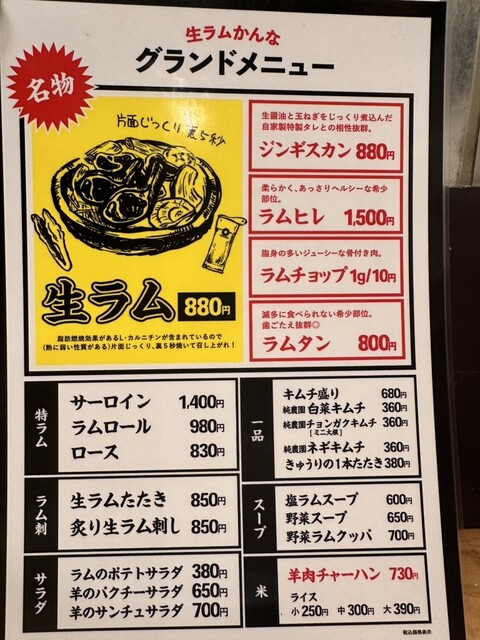 生ラムかんな
グランドメニュー
名物
片面じっくり裏5秒
生ラム 880円
脂肪燃焼効果があるL-カルニチンが含まれているので
(熱に弱い性質がある)片面じっくり、裏5秒焼いて召し上がれ！
生醤油と玉ねぎをじっくり煮込んだ
自家製特製タレとの相性抜群。
ジンギスカン 880円
柔らかく、あっさりヘルシーな希少
部位。
ラムヒレ 1,500円
脂身の多いジューシーな骨付き肉。
ラムチョップ 1g/10円
滅多に食べられない希少部位。
歯ごたえ抜群◎
ラムタン 800円
特ラム
サーロイン 1,400円
ラムロール 980円
ロース 830円
ラム刺
生ラムたたき 850円
炙り生ラム刺し 850円
サラダ
ラムのポテトサラダ 380円
羊のパクチーサラダ 650円
羊のサンチュサラダ 700円
一品
キムチ盛り 680円
純農園 白菜キムチ 360円
純農園 チョンガクキムチ 360円
[ミニ大根]
純農園 ネギキムチ 360円
きゅうりの1本たたき 380円
スープ
塩ラムスープ 600円
野菜スープ 650円
野菜ラムクッパ 700円
米
羊肉チャーハン 730円
ライス
小 250円 中 300円 大 390円
税込価格表示